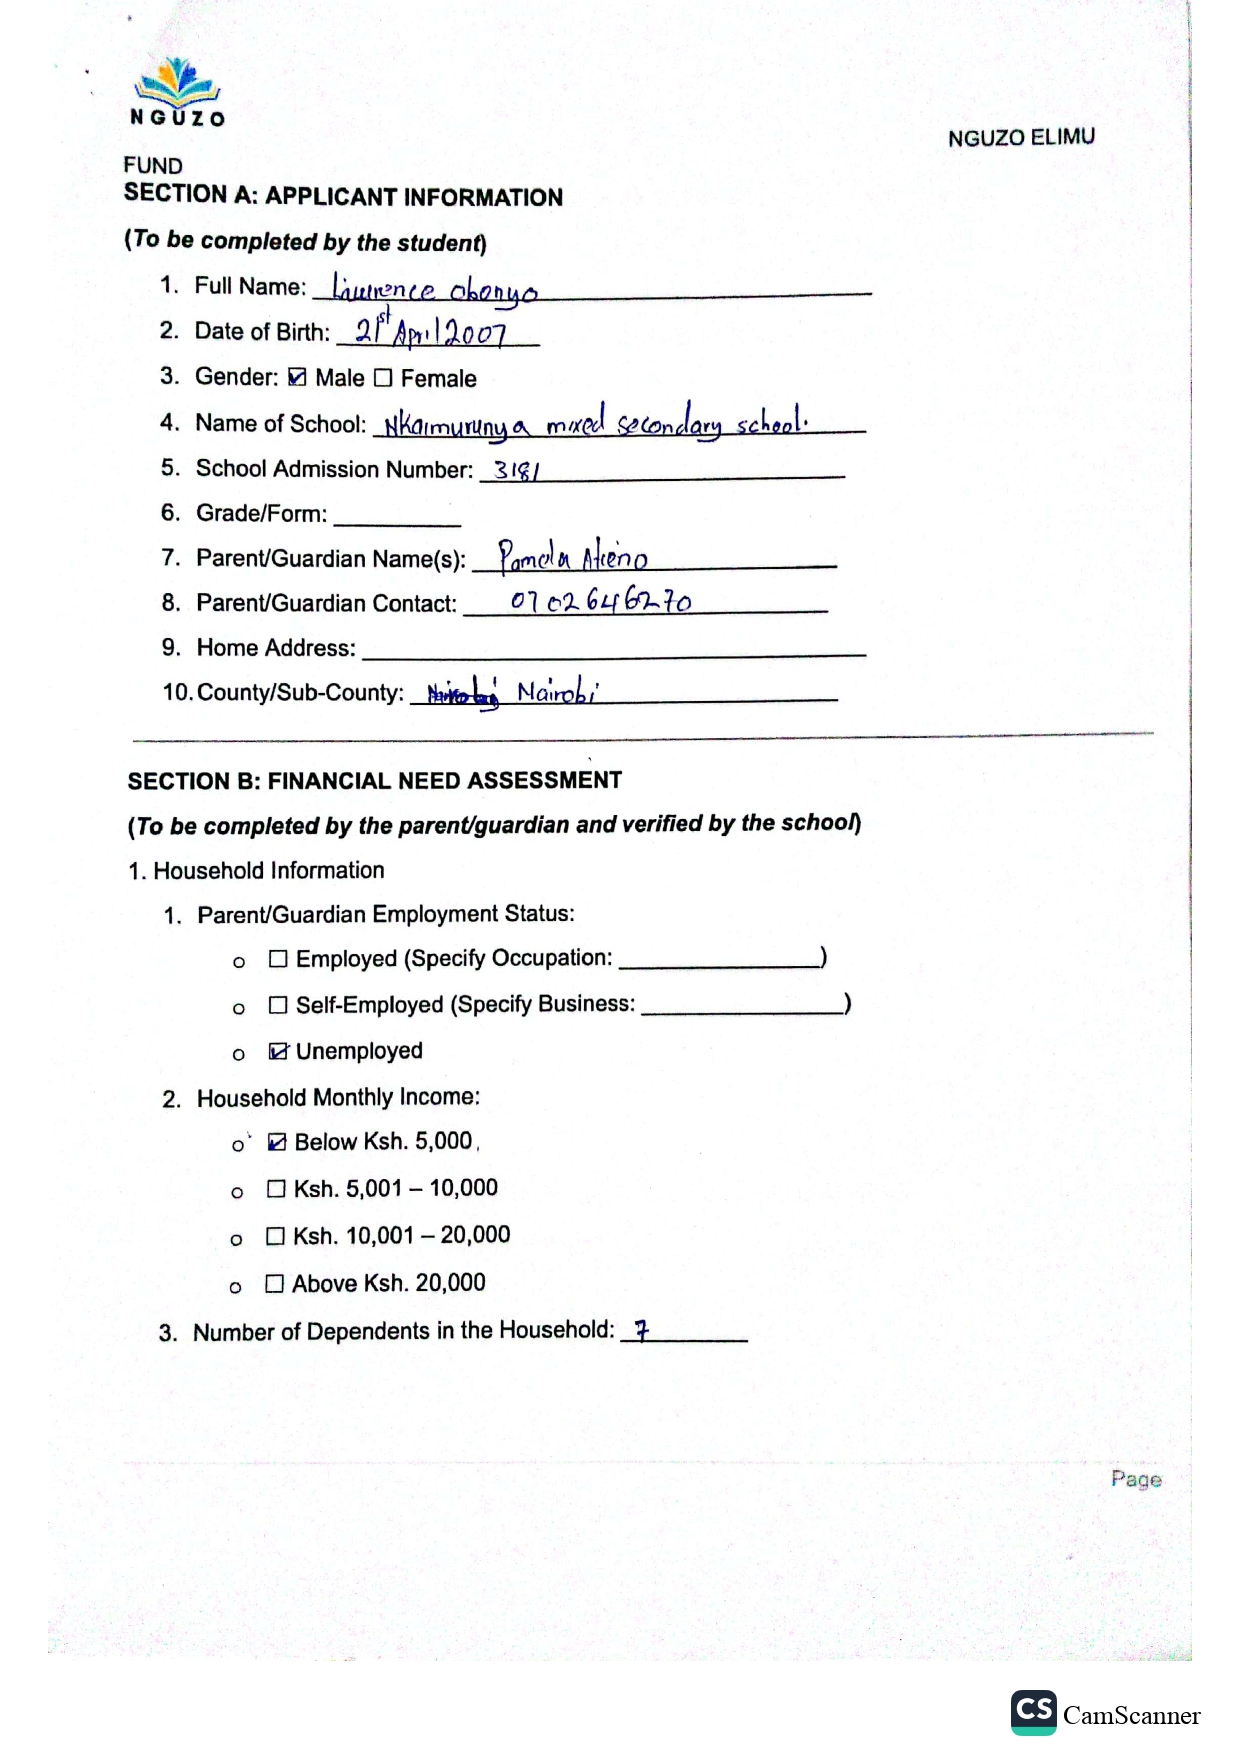 NGUZO
NGUZO ELIMU
FUND
SECTION A: APPLICANT INFORMATION
(To be completed by the student)
1. Full Name: Lawrence Obonyo
2. Date of Birth: 21st April 2007
3. Gender: ☑ Male ☐ Female
4. Name of School: Nkaimurunya mixed secondary school.
5. School Admission Number: 3181
6. Grade/Form:
7. Parent/Guardian Name(s): Pamela Atieno
8. Parent/Guardian Contact: 0702646270
9. Home Address:
10. County/Sub-County: Nairobi
SECTION B: FINANCIAL NEED ASSESSMENT
(To be completed by the parent/guardian and verified by the school)
1. Household Information
1. Parent/Guardian Employment Status:
o ☐ Employed (Specify Occupation: )
o ☐ Self-Employed (Specify Business: )
o ☑ Unemployed
2. Household Monthly Income:
o ☑ Below Ksh. 5,000
o ☐ Ksh. 5,001 – 10,000
o ☐ Ksh. 10,001 – 20,000
o ☐ Above Ksh. 20,000
3. Number of Dependents in the Household: 7
Page
CS CamScanner